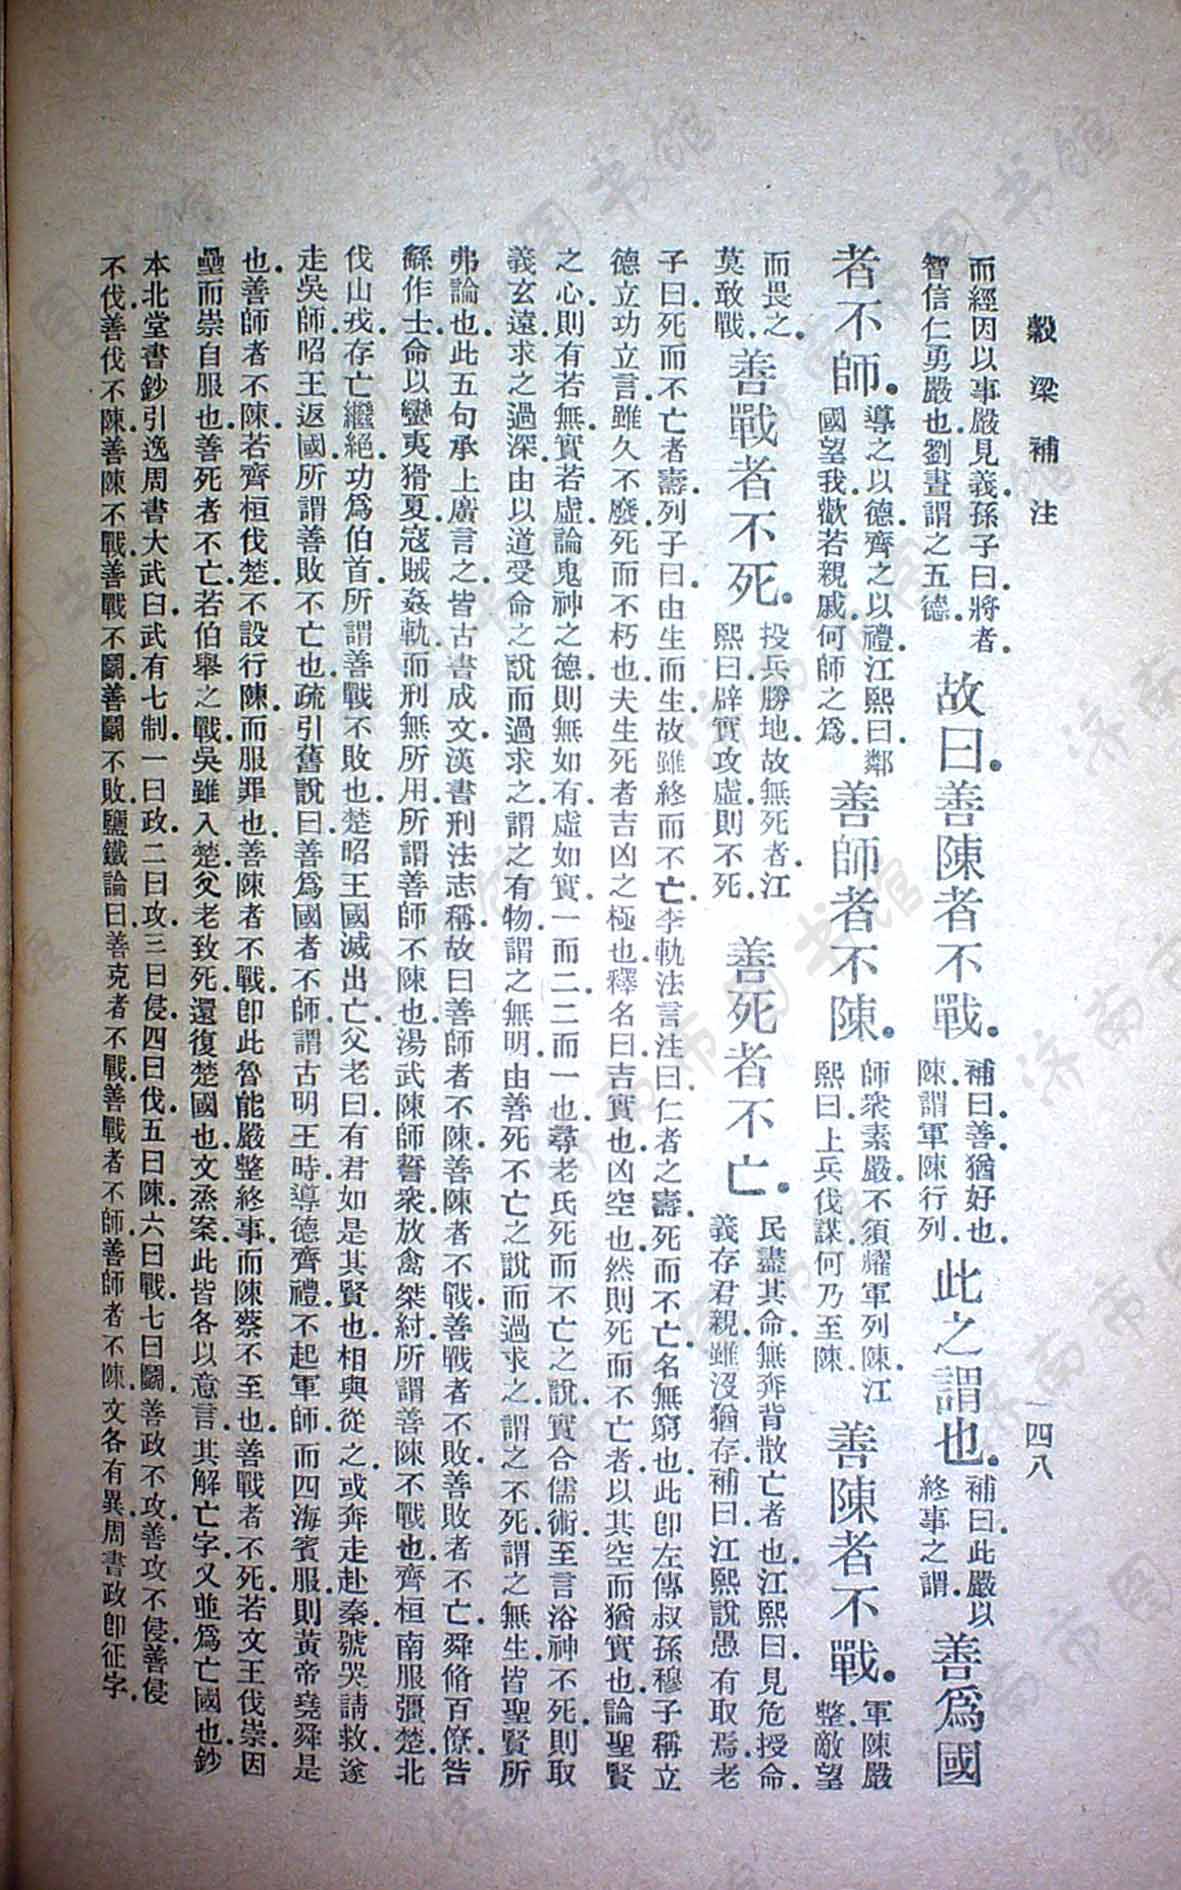 穀梁補注
一四八
而經因以事嚴見義孫子曰將者
智信仁勇嚴也劉晝謂之五德
故曰善陳者不戰
補曰善猶好也
陳謂軍陳行列
此之謂也
補曰此嚴以
終事之謂
善爲國
者不師
導之以德齊之以禮江熙曰鄰
國望我歡若親戚何師之爲
善師者不陳
師衆素嚴不須耀軍列陳江
熙曰上兵伐謀何乃至陳
善陳者不戰
軍陳嚴
整敵望
而畏之
莫敢戰
善戰者不死
投兵勝地故無死者江
熙曰辟實攻虛則不死
善死者不亡
民盡其命無奔背散亡者也江熙曰見危授命
義存君親雖沒猶存補曰江熙說愚有取焉老
子曰死而不亡者壽列子曰由生而生故雖終而不亡李軌法言注曰仁者之壽死而不亡名無窮也此卽左傳叔孫穆子稱立
德立功立言雖久不廢死而不朽也夫生死者吉凶之極也釋名曰吉實也凶空也然則死而不亡者以其空而猶實也論聖賢
之心則有若無實若虛論鬼神之德則無如有虛如實一而二二而一也尋老氏死而不亡之說實合儒術至言浴神不死則取
義玄遠求之過深由以道受命之說而過求之謂之有物謂之無明由善死不亡之說而過求之謂之不死謂之無生皆聖賢所
弗論也此五句承上廣言之皆古書成文漢書刑法志稱故曰善師者不陳善陳者不戰善戰者不敗善敗者不亡舜脩百僚咎
繇作士命以蠻夷猾夏寇賊姦軌而刑無所用所謂善師不陳也湯武陳師誓衆放禽桀紂所謂善陳不戰也齊桓南服彊楚北
伐山戎存亡繼絕功爲伯首所謂善戰不敗也楚昭王國滅出亡父老曰有君如是其賢也相與從之或奔走赴秦號哭請救遂
走吳師昭王返國所謂善敗不亡也疏引舊說曰善爲國者不師謂古明王時導德齊禮不起軍師而四海賓服則黃帝堯舜是
也善師者不陳若齊桓伐楚不設行陳而服罪也善陳者不戰卽此魯能嚴整終事而陳蔡不至也善戰者不死若文王伐崇因
壘而崇自服也善死者不亡若伯舉之戰吳雖入楚父老致死還復楚國也文烝案此皆各以意言其解亡字又並爲亡國也鈔
本北堂書鈔引逸周書大武曰武有七制一曰政二曰攻三曰侵四曰伐五曰陳六曰戰七曰鬭善政不攻善攻不侵善侵
不伐善伐不陳善陳不戰善戰不鬭善鬭不敗鹽鐵論曰善克者不戰善戰者不師善師者不陳文各有異周書政卽征字